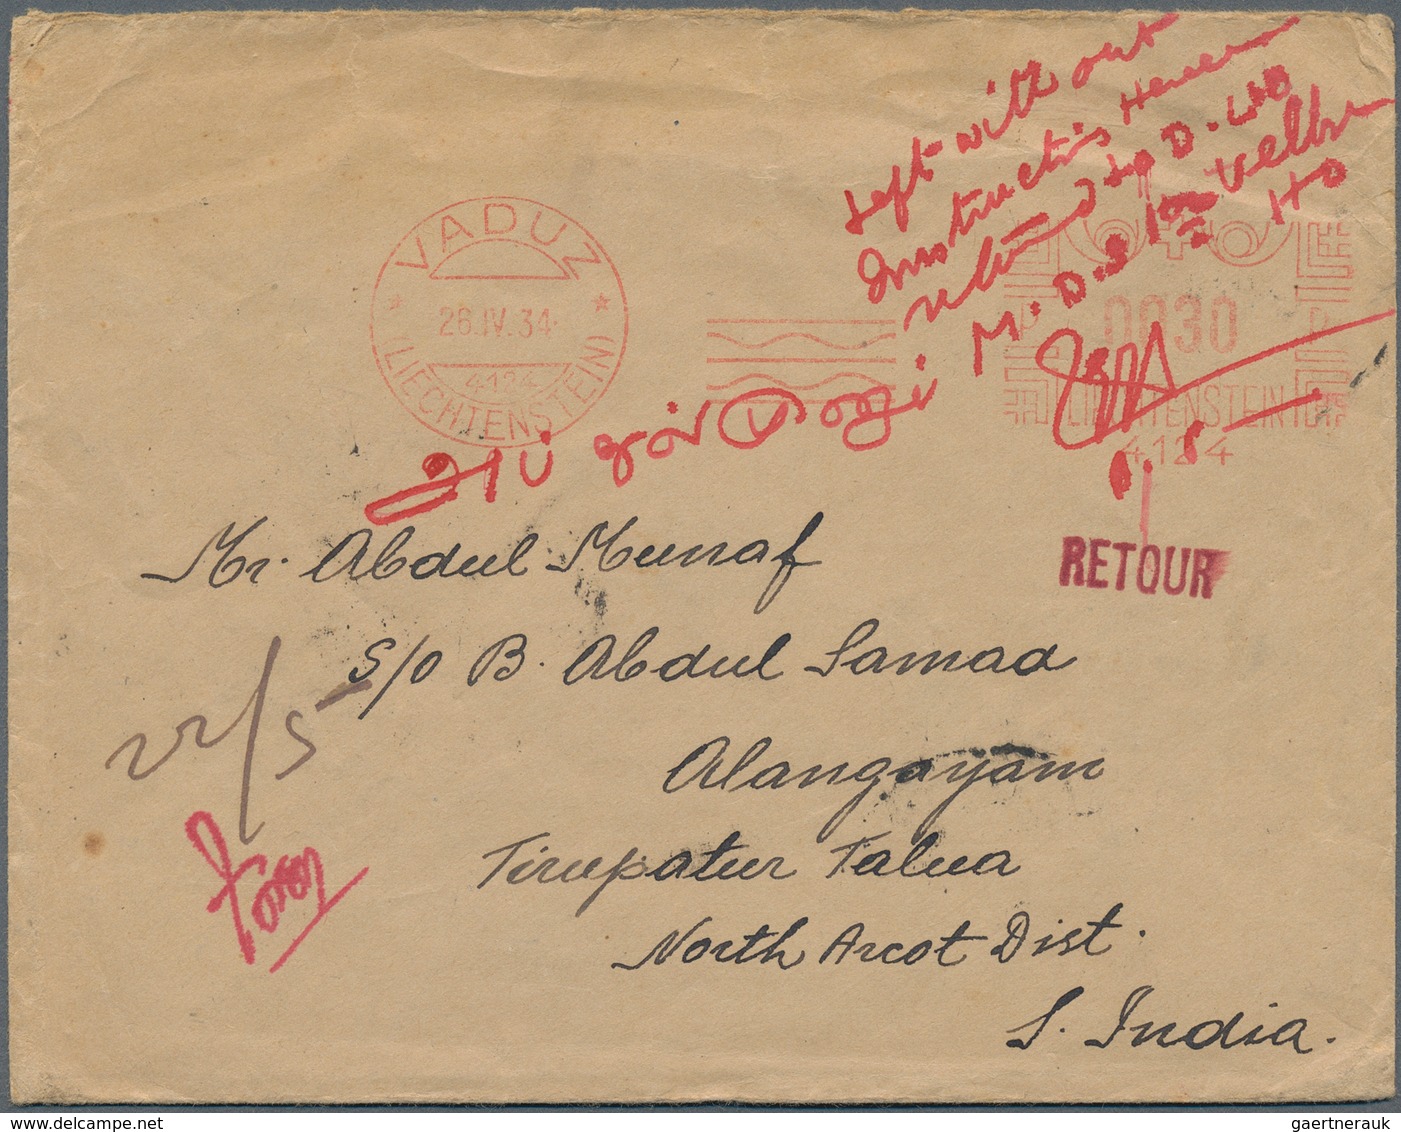 Left without
Instructions Hence
returned to D.L.O
M.D.S Vellore
HO
VADUZ
26.IV.34
4124
(LIECHTENSTEIN)
0030
LIECHTENSTEIN
4124
RETOUR
Mr. Abdul Munaf
S/O B. Abdul Samad
Alangayam
Tirupatur Taluq
North Arcot Dist.
S. India.
22/5
gaertnerauk